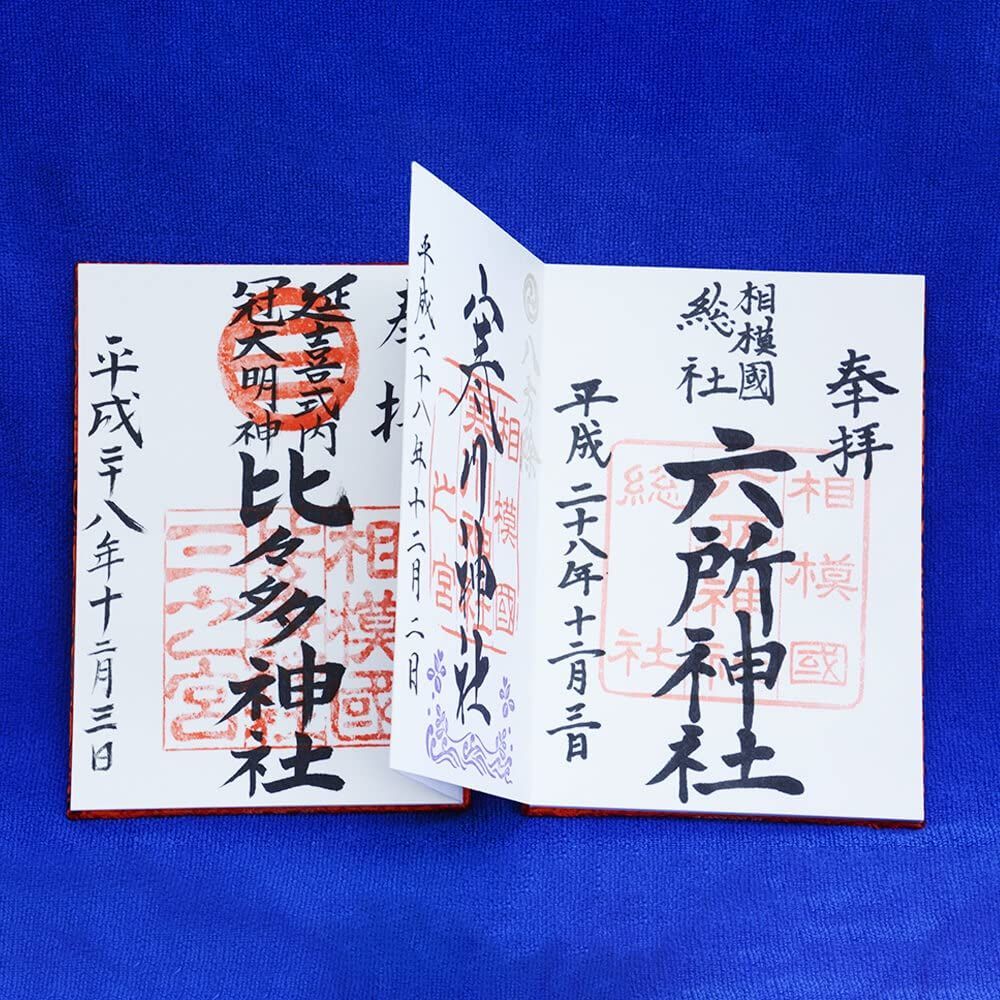 奉拝
相模國
総社
六所神社
平成二十八年十二月三日
相模國
六所神社
総社
寒川神社
相模國
一之宮
平成二十八年十二月二日
奉拝
延喜式内
冠大明神
比々多神社
相模國
三之宮
平成二十八年十二月三日